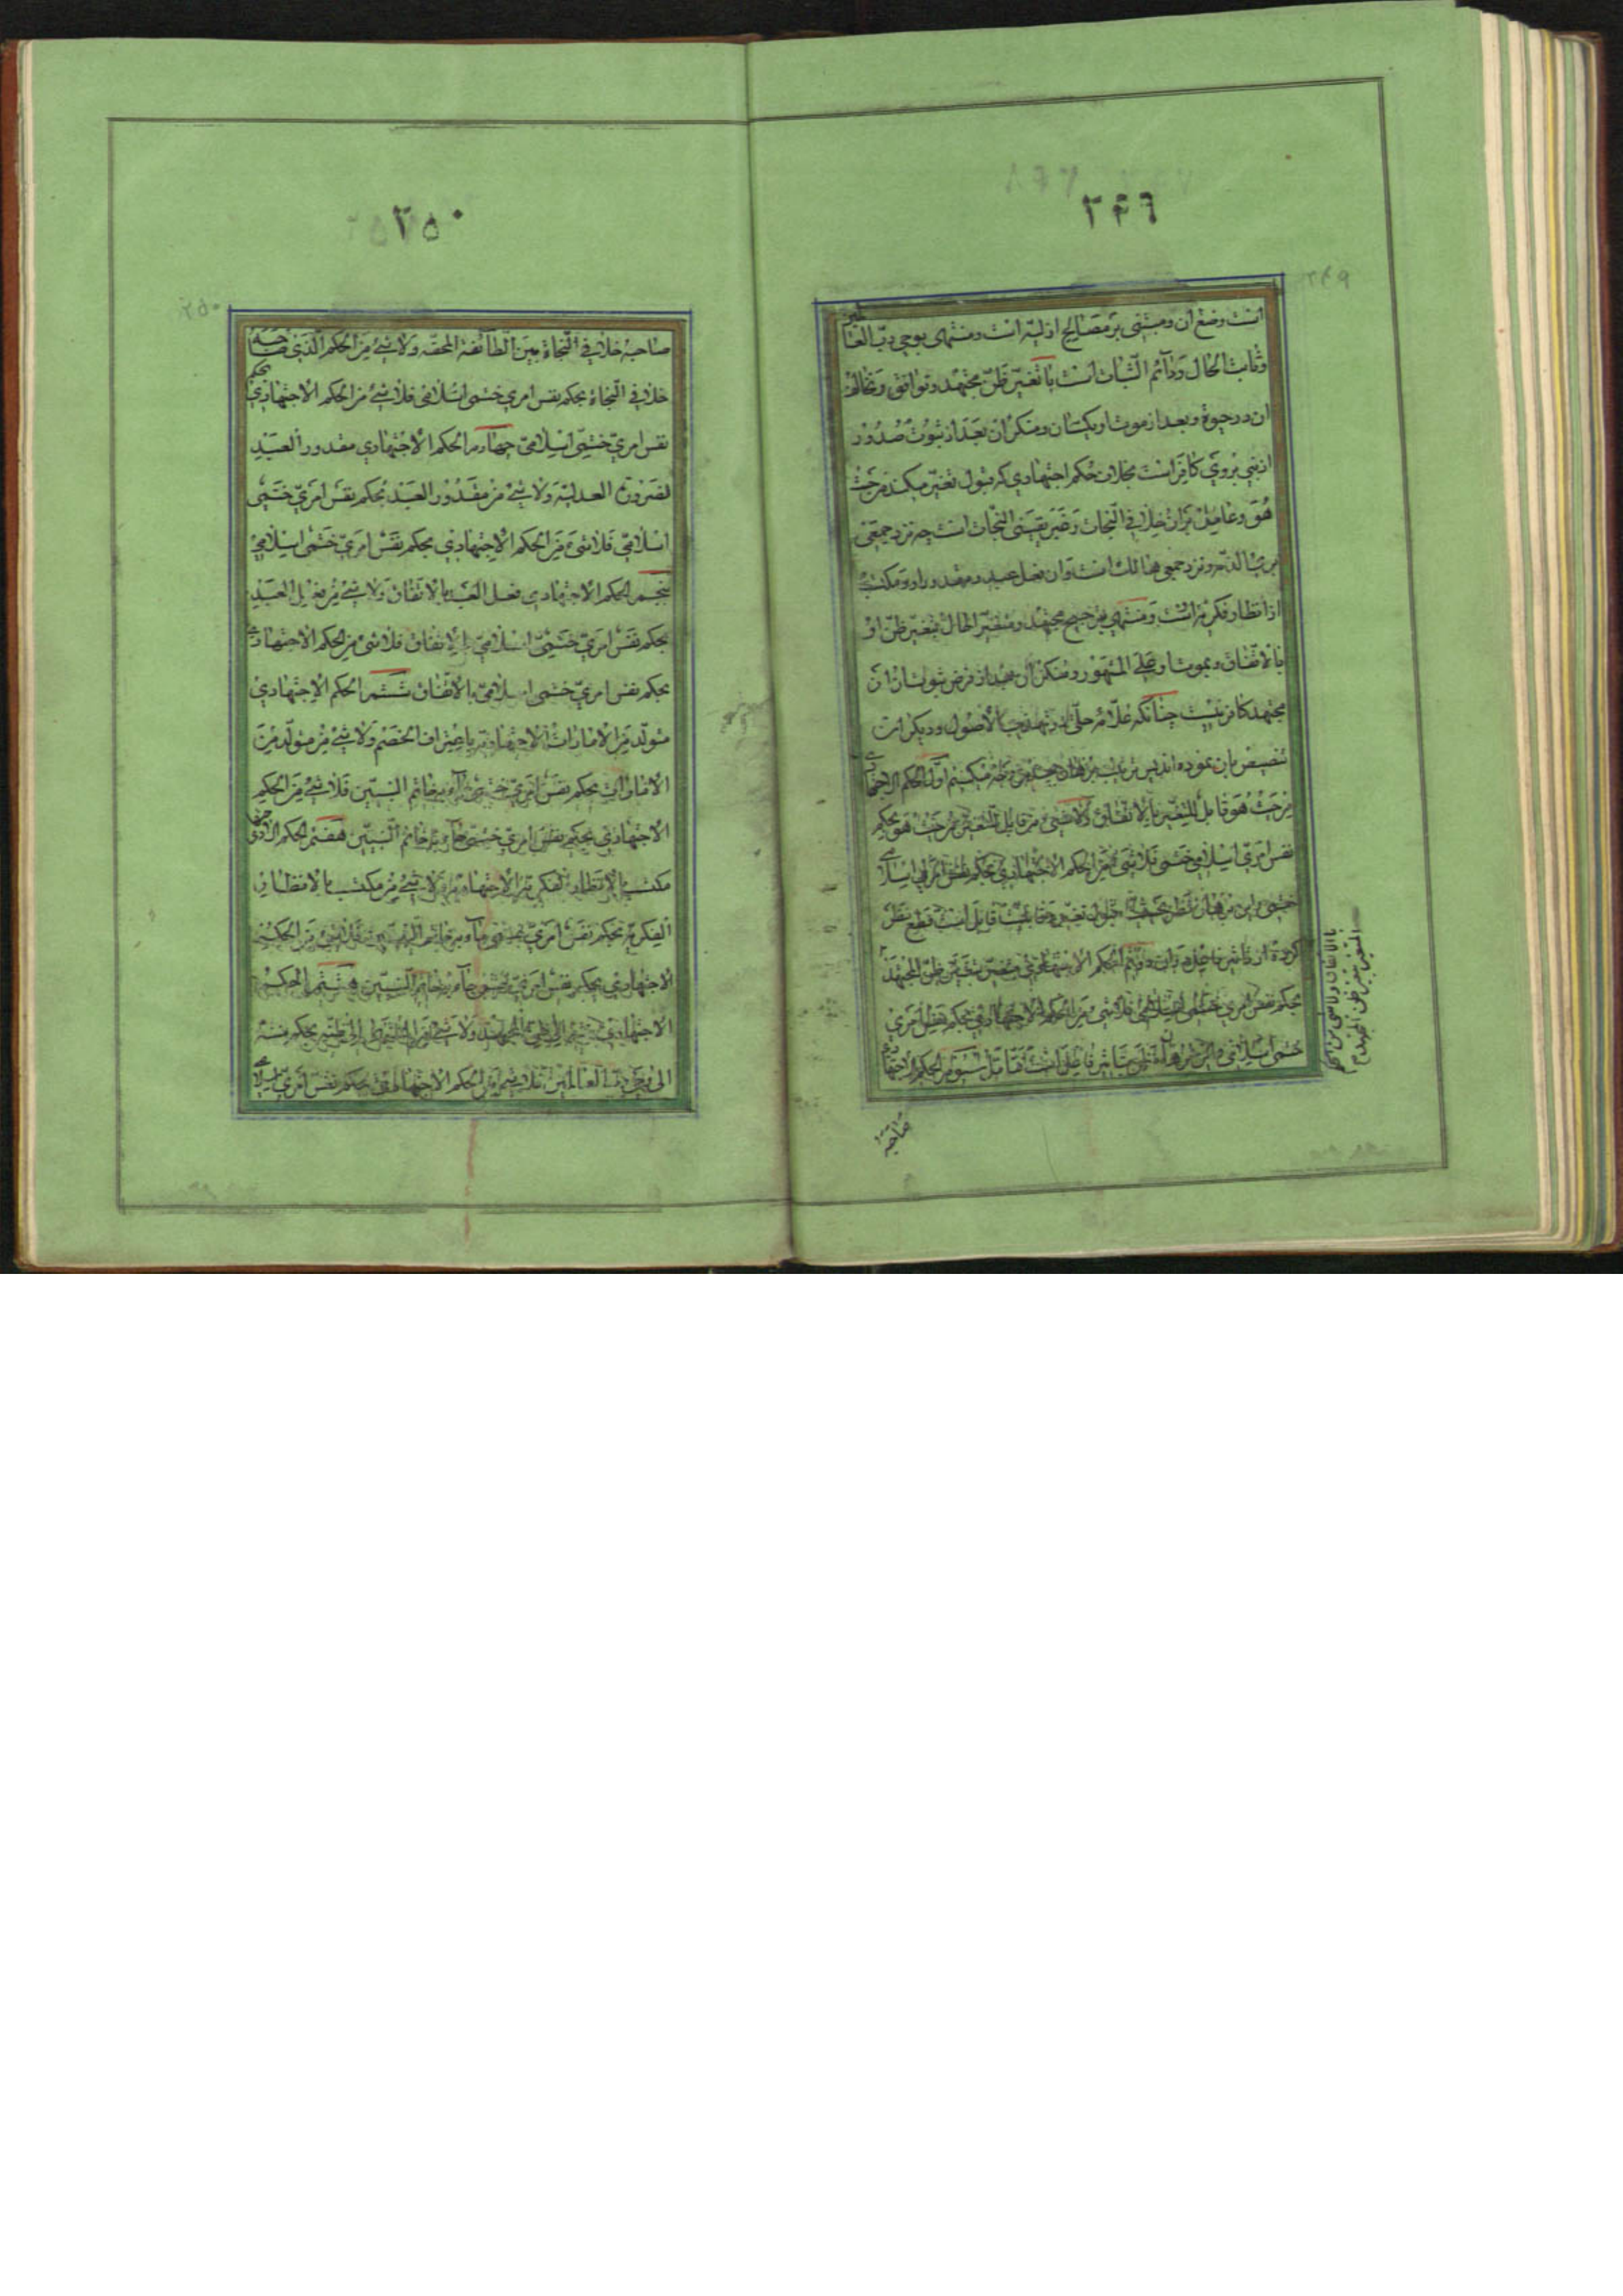 ۲۴۹
است وضع آن و مبتنی بر مصالح ازلیه است و منتهی بوحی رب العالمین
و ثابت الحال و دائم الثبات است با تغیر ظن مجتهد و توافق و تخالف
آن در حیوة و بعد از موت او یکسان و منکر آن بعد از ثبوت صدور
از نبی بروی کافر است بخلاف حکم اجتهادی که قبول تغیر میکند من حیث
هو و عامل بر آن خلاف فی النجات و غیر یقینی النجات است چه نزد جمعی
و نزد جمعی هالک است و آن فعل عبد و مقدور او و مکتسب
از انظار فکریه است و منتهی بترجیح مجتهد و متغیر الحال بتغیر ظن او
بالاتفاق و بموت او علی المشهور و منکر آن بعد از فرض ثبوت از آن
مجتهد کافر نیست چنانکه علامه حلی در تهذیب الاصول و دیگران
تنصیص بان نموده اند پس ترتیب برهان میکنیم اول الحکم الاجتهادی
من حیث هو قابل للتغیر بالاتفاق و لا شیء من قابل التغیر من حیث هو بحکم
نفس امری اسلامی ختمی فلا شیء من الحکم الاجتهادی بحکم نفس امری اسلامی
ختمی و این برهان نظر بحیثیت قبول تغیر و قابلیت قابل است قطع نظر
کرده از تاثیر فاعل در آن دویم الحکم الاجتهادی متغیر بتغیر ظن المجتهد
بحکم نفس امری ختمی اسلامی فلا شیء من الحکم الاجتهادی بحکم نفس امری
ختمی اسلامی و این برهان نظر بتاثیر فاعل است فتامل سیوم الحکم الاجتهادی
بالاتفاق و لا شیء من الحکم
المتغیر بتغیر ظن المجتهد
صاحبه
۲۵۰
صاحبه خلاف فی النجاة بین الطائفة المحقه ولا شیء من الحکم الذی صاحبه
خلاف فی النجاة بحکم نفس امری ختمی اسلامی فلا شیء من الحکم الاجتهادی بحکم
نفس امری ختمی اسلامی چهارم الحکم الاجتهادی مقدور العبد
لضرورة العدلیة ولا شیء من مقدور العبد بحکم نفس امری ختمی
اسلامی فلا شیء من الحکم الاجتهادی بحکم نفس امری ختمی اسلامی
پنجم الحکم الاجتهادی فعل العبد بالاتفاق ولا شیء من فعل العبد
بحکم نفس امری ختمی اسلامی بالاتفاق فلا شیء من الحکم الاجتهادی
بحکم نفس امری ختمی اسلامی بالاتفاق ششم الحکم الاجتهادی
متولد من الامارات الاجتهادیه باعتراف الخصم ولا شیء من متولد من
الامارات بحکم نفس امری ختمی جاء به خاتم النبیین فلا شیء من الحکم
الاجتهادی بحکم نفس امری ختمی جاء به خاتم النبیین هفتم الحکم الاجتهادی
مکتسب بالانظار الفکریة الاجتهادیة ولا شیء من مکتسب بالانظار
الفکریة بحکم نفس امری ختمی جاء به خاتم النبیین فلا شیء من الحکم
الاجتهادی بحکم نفس امری ختمی جاء به خاتم النبیین هشتم الحکم
الاجتهادی ینتهی الی ظن المجتهد ولا شیء من المنتهی الی ظنه بحکم منته
الی وحی رب العالمین فلا شیء من الحکم الاجتهادی بحکم نفس امری اسلامی